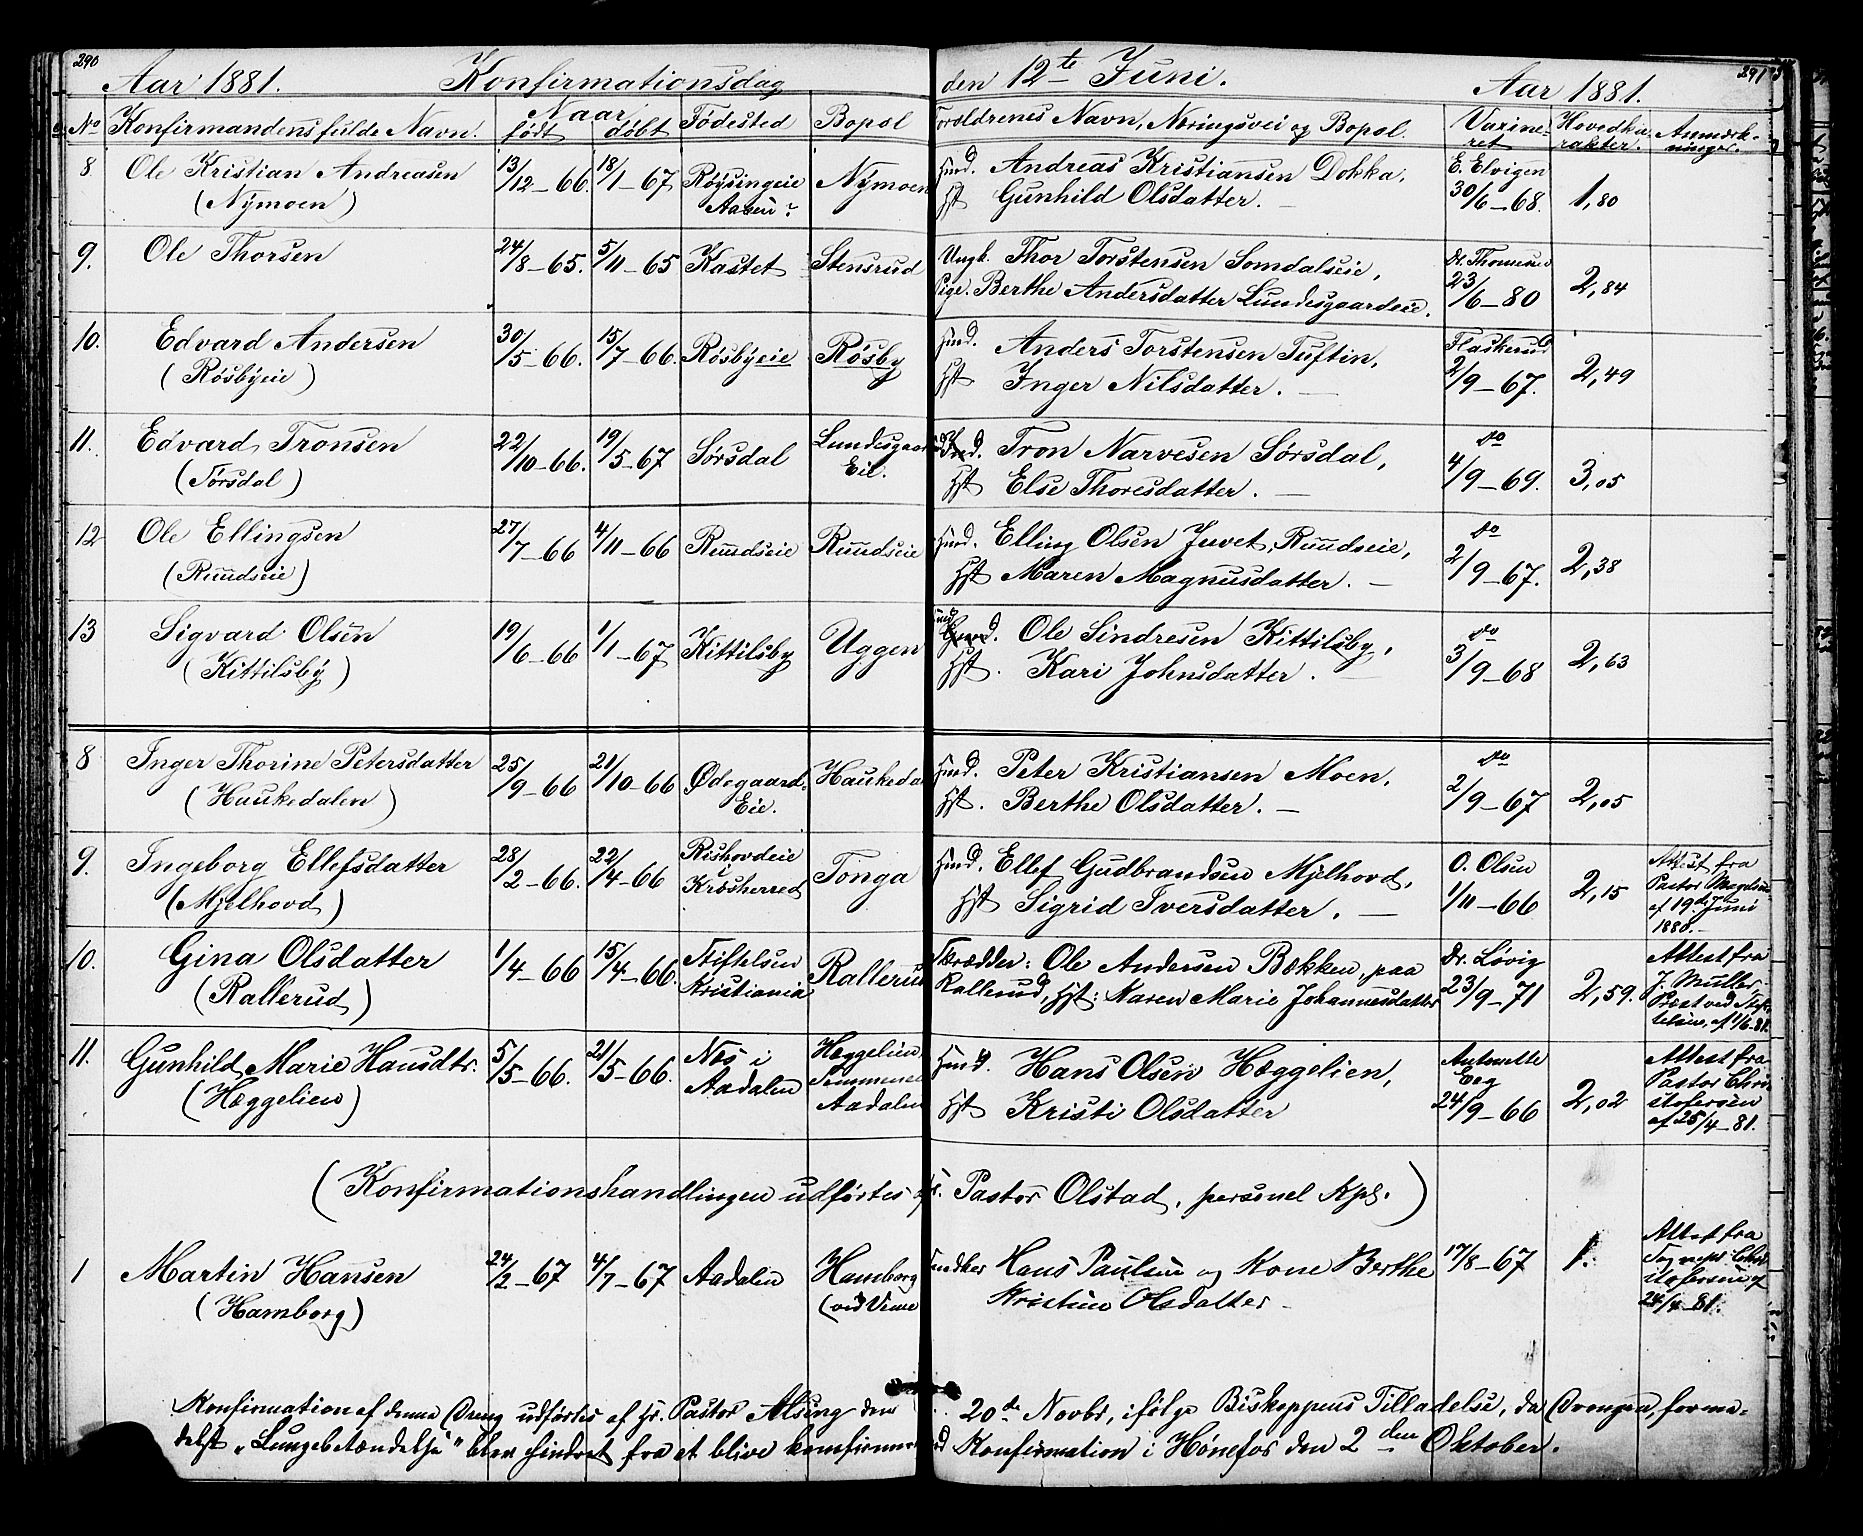 290
Aar 1881. Konfirmationsdag den 12te Juni. Aar 1881. 291
No Konfirmandens fulde Navn. Naar født døbt Fødested Bopæl Forældrenes Navn, Næringsvei og Bopæl. Vaxineret Hovedkarakter. Anmærkninger.
8 Ole Kristian Andreasen 13/12-66. 18/1-67 Røysingeie Nymoen Hmd. Andreas Kristiansen Dokka, E. Elvigen
(Nymoen) Aasen? Hst Gunhild Olsdatter. 30/6-68. 1,80
9. Ole Thorsen 24/8-65. 5/11-65 Kastet Stensrud Ungk. Thor Torstensen Somdalseie, Dr. Thomesen
Pige. Berthe Andersdatter Lundesgaardseie. 23/6-80 2,84
10. Edvard Andersen 30/5-66. 15/7-66. Røsbyeie Røsby Hmd. Anders Torstensen Tuftin, Flaskerud
(Røsbyeie) Hst Inger Nilsdatter. 2/9-67. 2,49
11. Edvard Tronsen 22/10-66. 19/5-67 Sørsdal Lundesgaard Tron Narvesen Sørsdal, do
(Sørsdal) Eie. Hst Else Thoresdatter. 4/9-69. 3,05
12 Ole Ellingsen 27/7-66 4/11-66 Ruudseie Ruudseie Hmd. Elling Olsen Juvet, Ruudseie, do
(Ruudseie) Hst Maren Magnusdatter. 2/9-67. 2,38
13 Sigvard Olsen 19/6-66 1/1-67 Kittilsby Uggen Ole Sindresen Kittilsby, do
(Kittilsby) Hst. Kari Johnsdatter. 3/9-68 2,63
8 Inger Thorine Petersdatter 25/9-66 21/10-66 Ødegaards- Haukedal Hmd. Peter Kristiansen Moen, do
(Haukedalen) Eie. Hst. Berthe Olsdatter. 2/9-67 2,05
9. Ingeborg Ellefsdatter 28/2-66. 22/4-66 Rishovdeie Tonga Hmd. Ellef Gudbrandsen Mjelhovd, O. Olsen Attest fra
(Mjelhovd) Krødsherred Hst Sigrid Iversdatter. 1/11-66 2,15 Pastor
af 19de Juni
1880.
10. Gina Olsdatter 1/4-66 15/4-66. Stiftelsen Rallerud Forædder: Ole Andersen Bækken, paa Dr. Løvig Attest fra
(Rallerud) Kristiania Rallerud, Hst: Maren Marie Johannesdatter 23/9-71 2,59. J. Müller
Præst ved Stiftelsen, af 1/6-81.
11. Gunhild Marie Hansdtr. 5/5-66. 21/5-66. Næs i Hæggelien Hmd. Hans Olsen Hæggelien, Antonette Attest fra
(Hæggelien) Aadalen Aadalen Hst Kristi Olsdatter Eeg 24/9-66 2,02 Pastor Christofersen
af 25/4-81.
(Konfirmationshandlingen udførtes af Hr. Pastor Olstad, personel Kpl.)
1 Martin Hansen 24/2-67 4/7-67 Aadalen Hamborg Hans Paulsen og Kone Berthe 17/8-67 1. Attest fra
(Hamborg) (ved Viker Kristine Olsdatter Sognepr. Christofersen af
24/4-81.
Konfirmation af denne Dreng udførtes af Hr. Pastor Alsing den 20de Novbr, ifølge Biskoppens Tilladelse, da Drengen, formedelst
„Lungebetændelse" blev hindret fra at blive konfirmeret ved Konfirmation i Hønefos den 2den Oktober.